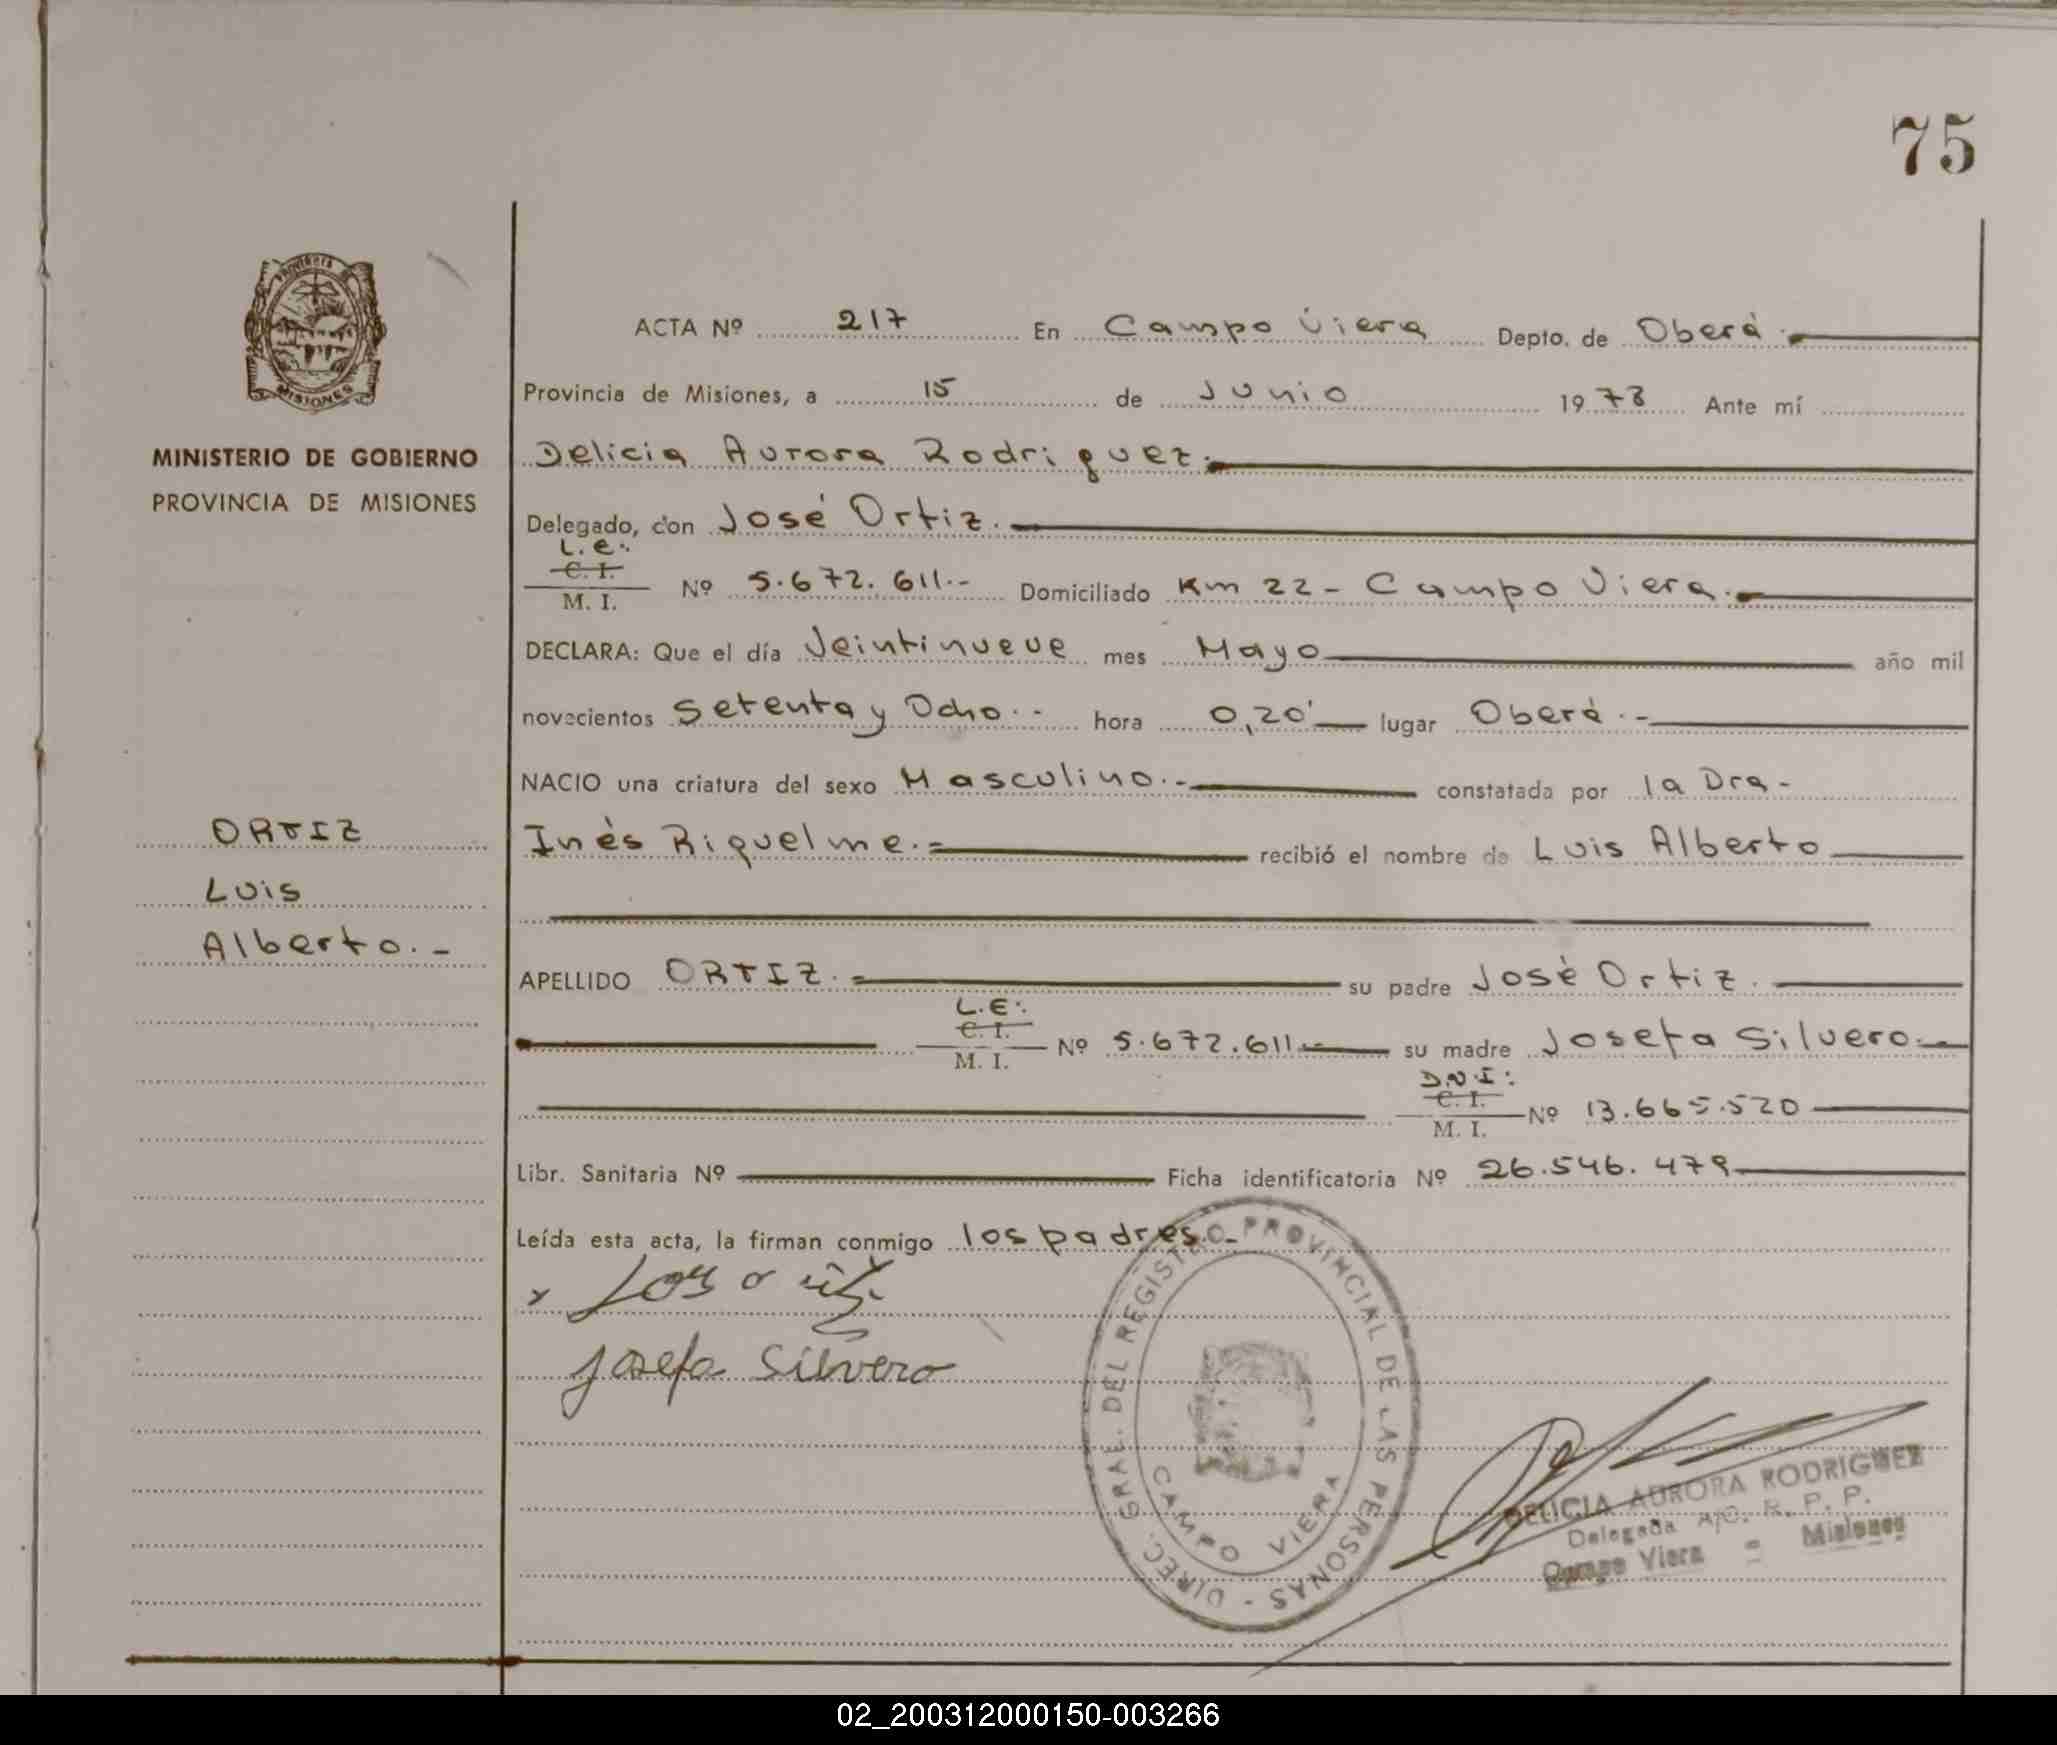 75
PROVINCIA
MISIONES
MINISTERIO DE GOBIERNO
PROVINCIA DE MISIONES
ORTIZ
Luis
Alberto.-
ACTA Nº 217 En Campo Viera Depto. de Oberá.
Provincia de Misiones, a 15 de Junio 1978 Ante mí
Delicia Aurora Rodriguez.
Delegado, con José Ortiz.
L.E:
C. I.
M. I. Nº 5.672.611.- Domiciliado Km 22 - Campo Viera.
DECLARA: Que el día Veintinueve mes Mayo año mil
novecientos Setenta y Ocho.- hora 0,20' lugar Oberá.-
NACIO una criatura del sexo Masculino.- constatada por la Dra.
Inés Riquelme.= recibió el nombre de Luis Alberto
APELLIDO ORTIZ.= su padre José Ortiz.
L.E:
C. I.
M. I. Nº 5.672.611.- su madre Josefa Silvero.-
D.N.I:
C. I.
M. I. Nº 13.665.520
Libr. Sanitaria Nº Ficha identificatoria Nº 26.546.479
Leída esta acta, la firman conmigo los padres.-
x
Josefa Silvero
DIREC. GRAL. DEL REGISTRO PROVINCIAL DE LAS PERSONAS -
CAMPO VIERA
DELICIA AURORA RODRIGUEZ
Delegada A/C. R. P. P.
Campo Viera - Misiones
02_200312000150-003266